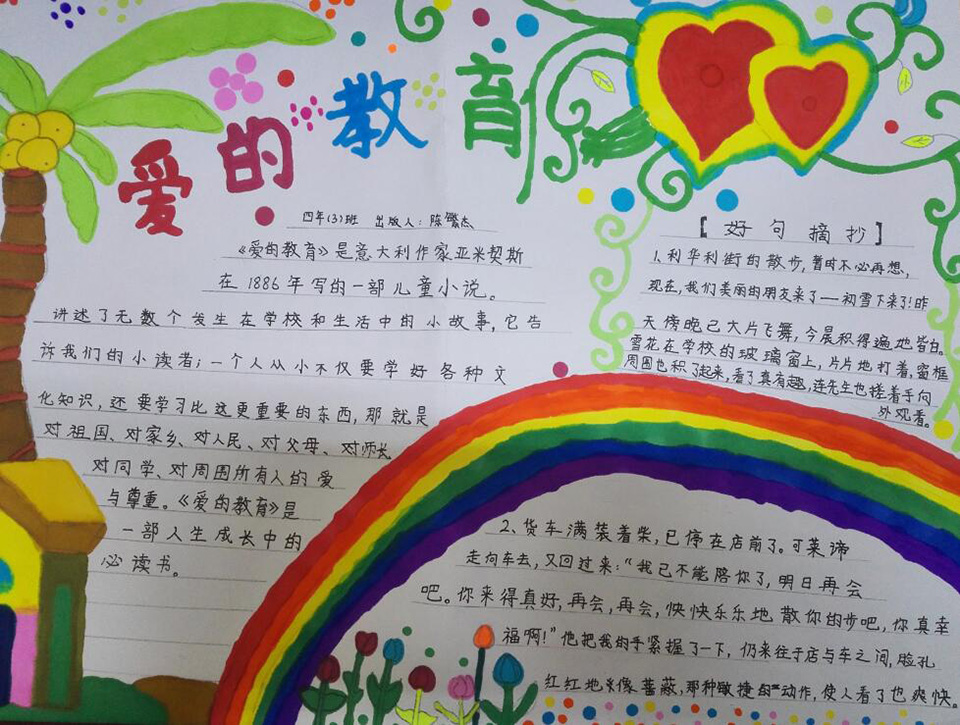 爱的教育
四年(3)班 出版人:陈繁杰
《爱的教育》是意大利作家亚米契斯
在1886年写的一部儿童小说。
讲述了无数个发生在学校和生活中的小故事,它告
诉我们的小读者;一个人从小不仅要学好各种文
化知识,还要学习比这更重要的东西,那就是
对祖国、对家乡、对人民、对父母、对师长
对同学、对周围所有人的爱
与尊重。《爱的教育》是
一部人生成长中的
必读书。
【好句摘抄】
1、利华利街的散步,暂时不必再想,
现在,我们美丽的朋友来了——初雪下来了!昨
天傍晚已大片飞舞,今晨积得遍地皆白。
雪花在学校的玻璃窗上,片片地打着,窗框
周围也积了起来,看了真有趣,连先生也搓着手向
外观看。
2、货车满装着柴,已停在店前了。可莱谛
走向车去,又回过来:“我已不能陪你了,明日再会
吧。你来得真好,再会,再会,快快乐乐地散你的步吧,你真幸
福啊!”他把我的手紧握了一下,仍来往于店与车之间,脸孔
红红地像蔷薇,那种敏捷的动作,使人看了也爽快。